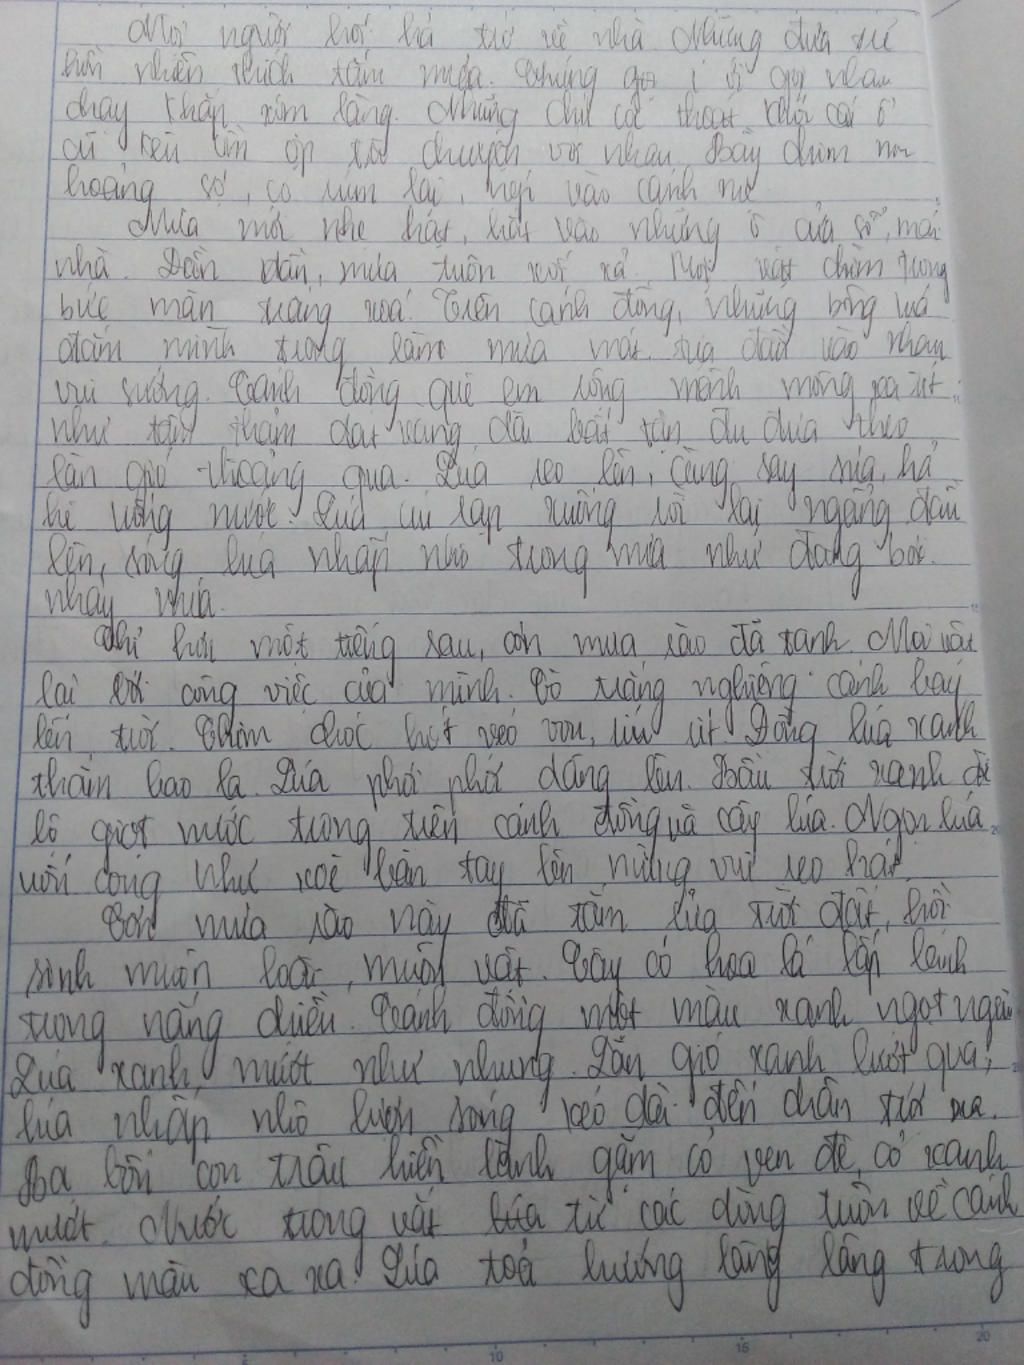 Mọi người hối hả trở về nhà. Những đứa trẻ
hồn nhiên thích tắm mưa. Chúng gọi í ới gọi nhau
chạy khắp xóm làng. Những chú cóc thoát khỏi cái ổ
cũ kêu ồm ộp trò chuyện với nhau. Bầy chim non
hoảng sợ, co rúm lại, nép vào cánh mẹ
Mưa mới nhẹ hạt, hắt vào những ô cửa sổ, mái
nhà. Dần dần, mưa tuôn xối xả. Mọi vật chìm trong
bức màn trắng xoá. Trên cánh đồng, những bông lúa
đắm mình trong làn mưa mát, tựa đầu vào nhau
vui sướng. Cánh đồng quê em rộng mênh mông xa tít
như tấm thảm dát vàng dài bất tận đu đưa theo
làn gió thoảng qua. Lúa reo lên, càng say sưa, hả
hê uống nước. Lúa cúi rạp xuống rồi lại ngẩng đầu
lên, sóng lúa nhấp nhô trong mưa như đang bơi
nhảy múa.
Chỉ hơn một tiếng sau, cơn mưa rào đã tạnh. Mọi vật
lại với công việc của mình. Cò trắng nghiêng cánh bay
lên trời. Chim chóc hót véo von, ríu rít. Đồng lúa xanh
thắm bao la. Lúa phơi phới dâng lên. Bầu trời xanh để
lộ giọt nước trong trên cánh đồng và cây lúa. Ngọn lúa
uốn cong như xoè bàn tay lên mừng vui reo hát.
Cơn mưa rào này đã tắm rửa trời đất, hồi
sinh muôn loài, muôn vật. Cây cỏ hoa lá lấp lánh
trong nắng chiều. Cánh đồng một màu xanh ngọt ngào
Lúa xanh mướt như nhung. Làn gió xanh lướt qua,
lúa nhấp nhô lượn sóng kéo dài đến chân trời xa.
Ba bốn con trâu hiền lành gặm cỏ ven đê, cỏ xanh
mướt. Nước trong vắt từ các dòng tuôn về cánh
đồng màu xa xa. Lúa toả hương lâng lâng trong